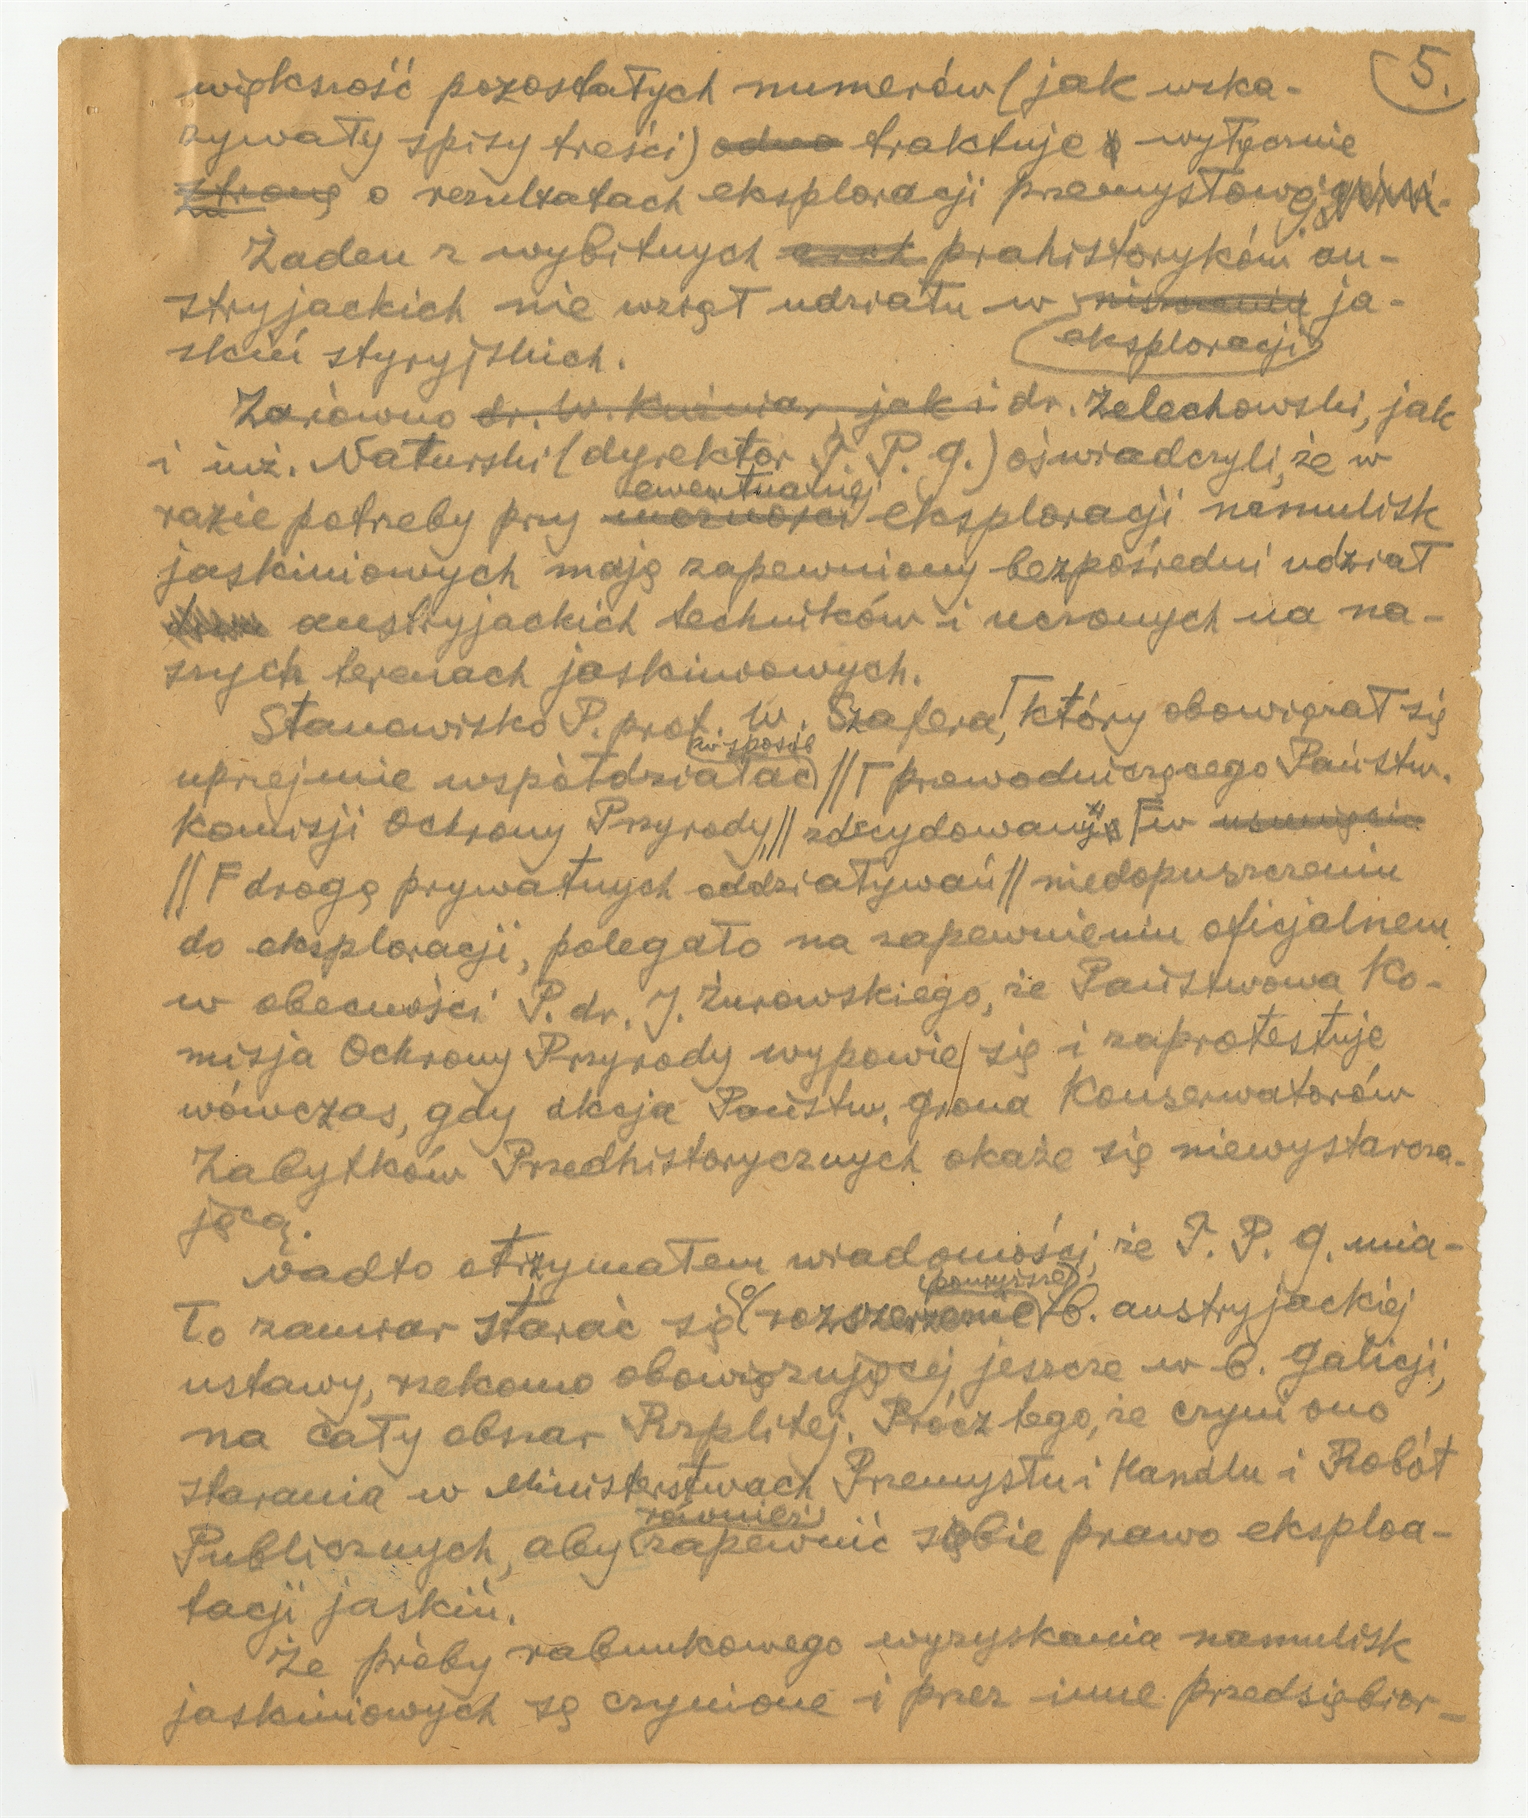 5.
większość pozostałych numerów (jak wska-
zywały spisy treści) odno traktuje wyłącznie
stronę o rezultatach eksploracji przemysłowej.
Żaden z wybitnych prahistoryków au-
stryjackich nie wziął udziału w ja-
eksploracji
skiń styryjskich.
Zarówno dr. W. Kuźniar, jak i dr. Żelechowski, jak
i inż. Naturski (dyrektor T. P. G.) oświadczyli, że w
ewentualnej
razie potrzeby przy możności eksploracji namulisk
jaskiniowych mają zapewniony bezpośredni udział
austryjackich techników i uczonych na na-
szych terenach jaskiniowych.
Stanowisko P. prof. W. Szafera, który obowiązał się
w sposób
uprzejmie współdziałać // przewodniczącego Państw.
Komisji Ochrony Przyrody, // zdecydowany w
// drogą prywatnych oddziaływań // niedopuszczeniu
do eksploracji, polegało na zapewnieniu oficjalnem
w obecności P. dr. J. Żurowskiego, że Państwowa Ko-
misja Ochrony Przyrody wypowie się i zaprotestuje
wówczas, gdy akcja Państw. Grona Konserwatorów
Zabytków Przedhistorycznych okaże się niewystarcza-
jącą.
Nadto otrzymałem wiadomości, że T. P. G. mia-
powyższej
ło zamiar starać się o rozszerzenie b. austryjackiej
ustawy, rzekomo obowiązującej jeszcze w b. Galicji,
na cały obszar Rzplitej. Prócz tego, że czyni ono
starania w Ministerstwach Przemysłu i Handlu i Robót
również
Publicznych, aby zapewnić sobie prawo eksploa-
tacji jaskiń.
Że próby rabunkowego wyzyskania namulisk
jaskiniowych są czynione i przez inne przedsiębior-